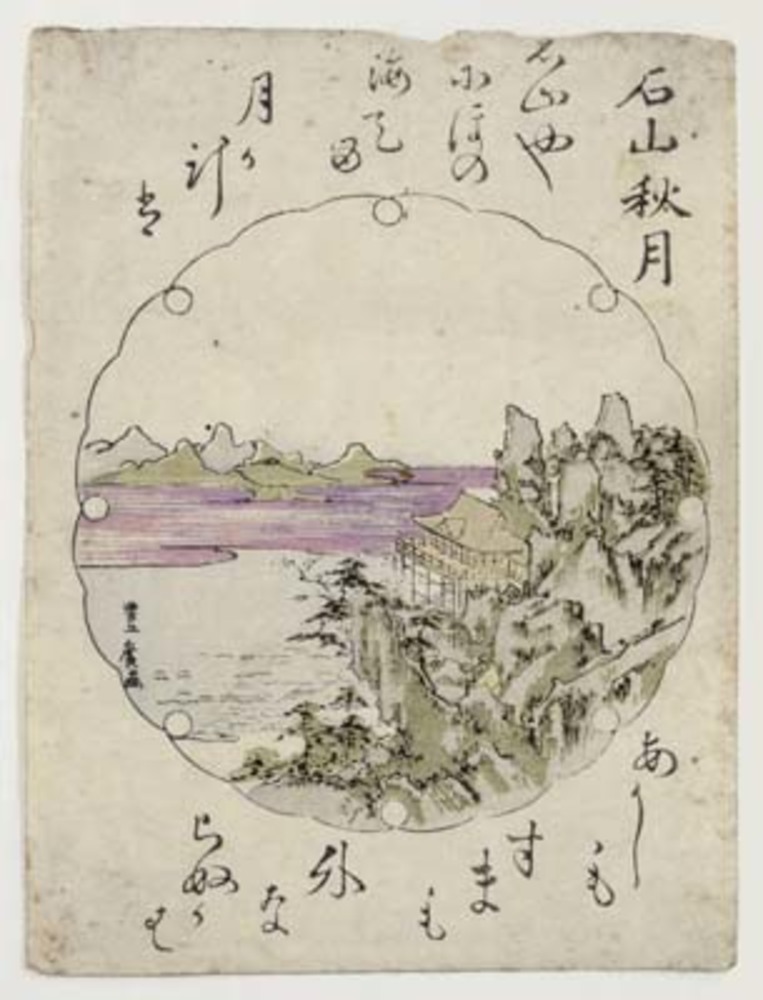 石山秋月
石山や
にほの
海て
る
月か
け
は
あかし
も
すま
も
外
な
らぬか
は
豊広画